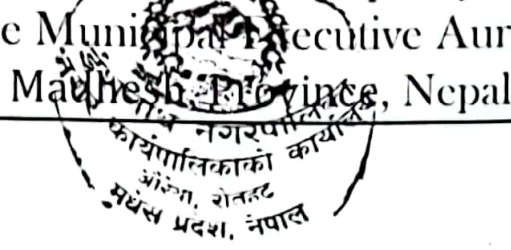 e Municipal Executive Aur
Madhesh Province, Nepal
नगरपालिका
कार्यपालिकाको कार्यालय
औरैया, रौतहट
मधेस प्रदेश, नेपाल